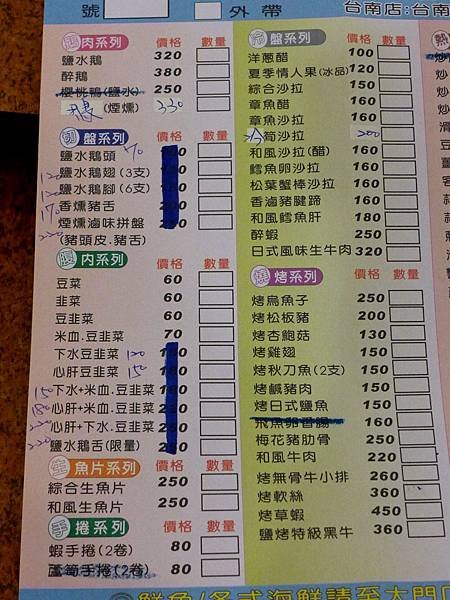 號 外帶 台南店:台南
鵝肉系列 價格 數量
鹽水鵝 320
醉鵝 380
櫻桃鴨(鹽水) 250
(煙燻) 330
價格 數量
鹽水鵝頭 70
鹽水鵝翅(3支)
鹽水鵝腳(6支)
香燻豬舌
煙燻滷味拼盤
(豬頭皮.豬舌)
內系列 價格 數量
豆菜 60
韭菜 60
豆韭菜 60
米血.豆韭菜 70
下水豆韭菜 120
心肝豆韭菜 150
150 下水+米血.豆韭菜
180 心肝+米血.豆韭菜
心肝+下水.豆韭菜
鹽水鵝舌(限量)
生魚片系列 價格 數量
綜合生魚片 250
和風生魚片 250
手捲系列 價格 數量
蝦手捲(2卷) 80
蘆筍手捲(2卷) 80
冷盤系列 價格 數量
洋蔥醋 100
夏季情人果(冰品) 120
綜合沙拉 160
章魚醋 160
章魚沙拉 160
筍沙拉 200
和風沙拉(醋) 160
鱈魚卵沙拉 160
松葉蟹棒沙拉 160
香滷豬腱蹄 160
和風鱈魚肝 180
醉蝦 250
日式風味生牛肉 320
燒烤系列 價格 數量
烤烏魚子 250
烤松板豬 200
烤杏鮑菇 130
烤雞翅 150
烤秋刀魚(2支) 150
烤鹹豬肉 150
烤日式鹽魚 150
飛魚卵香腸 160
梅花豬肋骨 250
和風牛肉 220
烤無骨牛小排 260
烤軟絲 360
烤草蝦 450
鹽烤特級黑牛 360
鮮魚/各式海鮮請至大門口